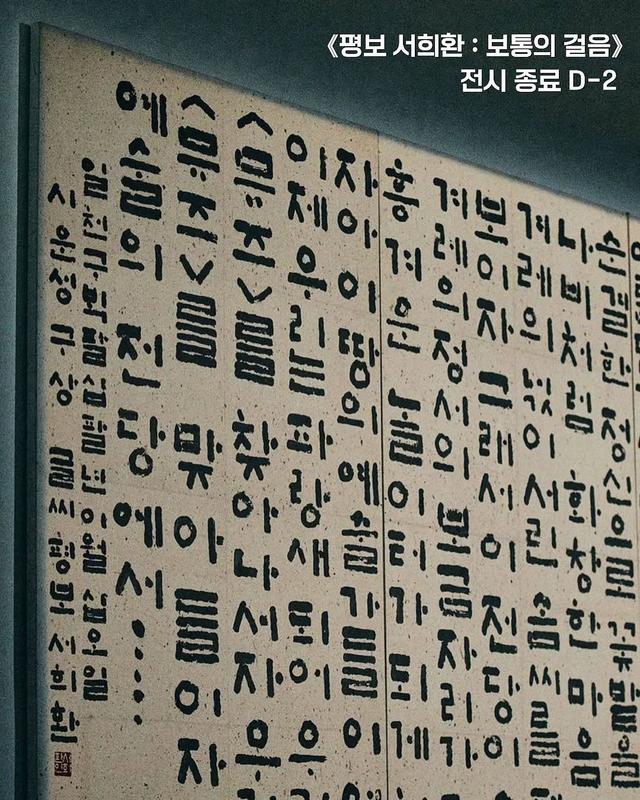 《평보 서희환 : 보통의 걸음》
전시 종료 D-2
순결한 정신으로 꽃밭을
나비처럼 화창한 마음
겨레의 넋이 서린 솜씨를
보이자 그래서 이 전당이
겨레의 정서의 보금자리가
흥겨운 놀이터가 되게
자아 이 땅의 예술가들이
이제 우리는 파랑새 되어
<뮤즈>를 찾아 나서자 우
<뮤즈>를 맞아들이자
예술의 전당에서······
일천구백팔십팔년 이월 십오일
시 운성 구상 글씨 평보 서희환